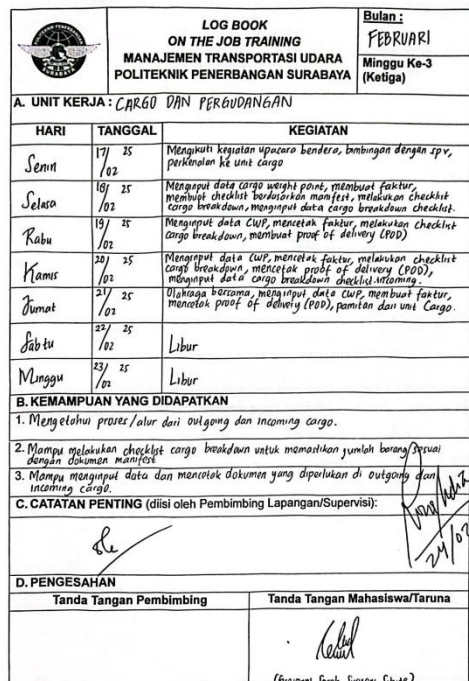 LOG BOOK
ON THE JOB TRAINING
MANAJEMEN TRANSPORTASI UDARA
POLITEKNIK PENERBANGAN SURABAYA
Bulan :
FEBRUARI
Minggu Ke-3
(Ketiga)
A. UNIT KERJA : CARGO DAN PERGUDANGAN
HARI TANGGAL KEGIATAN
Senin 17/02 25 Mengikuti kegiatan upacara bendera, bimbingan dengan spv,
perkenalan ke unit cargo
Selasa 18/02 25 Menginput data cargo weight point, membuat faktur,
membuat checklist berdasarkan manifest, melakukan checklist
cargo breakdown, menginput data cargo breakdown checklist.
Rabu 19/02 25 Menginput data CWP, mencetak faktur, melakukan checklist
cargo breakdown, membuat proof of delivery (POD)
Kamis 20/02 25 Menginput data CWP, mencetak faktur, melakukan checklist
cargo breakdown, mencetak proof of delivery (POD),
menginput data cargo breakdown checklist incoming.
Jumat 21/02 25 Olahraga bersama, menginput data CWP, membuat faktur,
mencetak proof of delivery (POD), pamitan dari unit Cargo.
Sabtu 22/02 25 Libur
Minggu 23/02 25 Libur
B. KEMAMPUAN YANG DIDAPATKAN
1. Mengetahui proses/alur dari outgoing dan incoming cargo.
2. Mampu melakukan checklist cargo breakdown untuk memastikan jumlah barang sesuai
dengan dokumen manifest
3. Mampu menginput data dan mencetak dokumen yang diperlukan di outgoing dan
incoming cargo.
C. CATATAN PENTING (diisi oleh Pembimbing Lapangan/Supervisi):
24/02
D. PENGESAHAN
Tanda Tangan Pembimbing Tanda Tangan Mahasiswa/Taruna